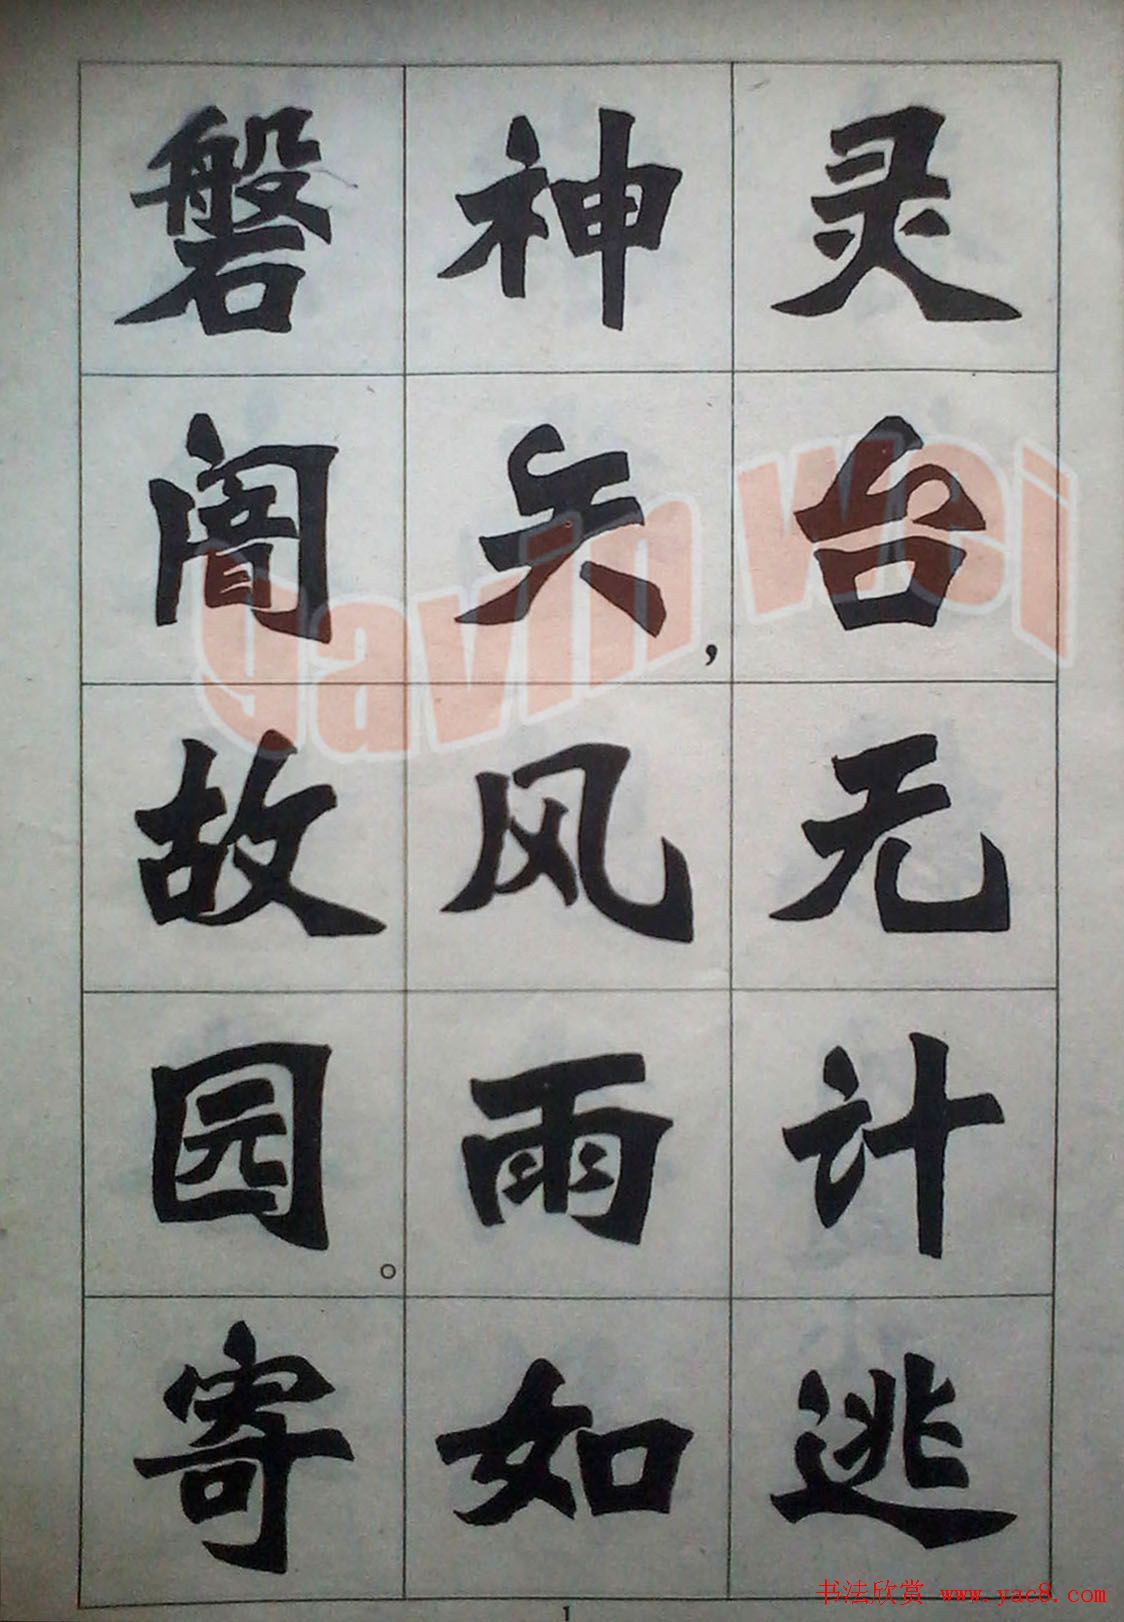 灵台无计逃
神矢，风雨如
磐闇故园。寄
gavin wei
1
书法欣赏 www.yac8.com